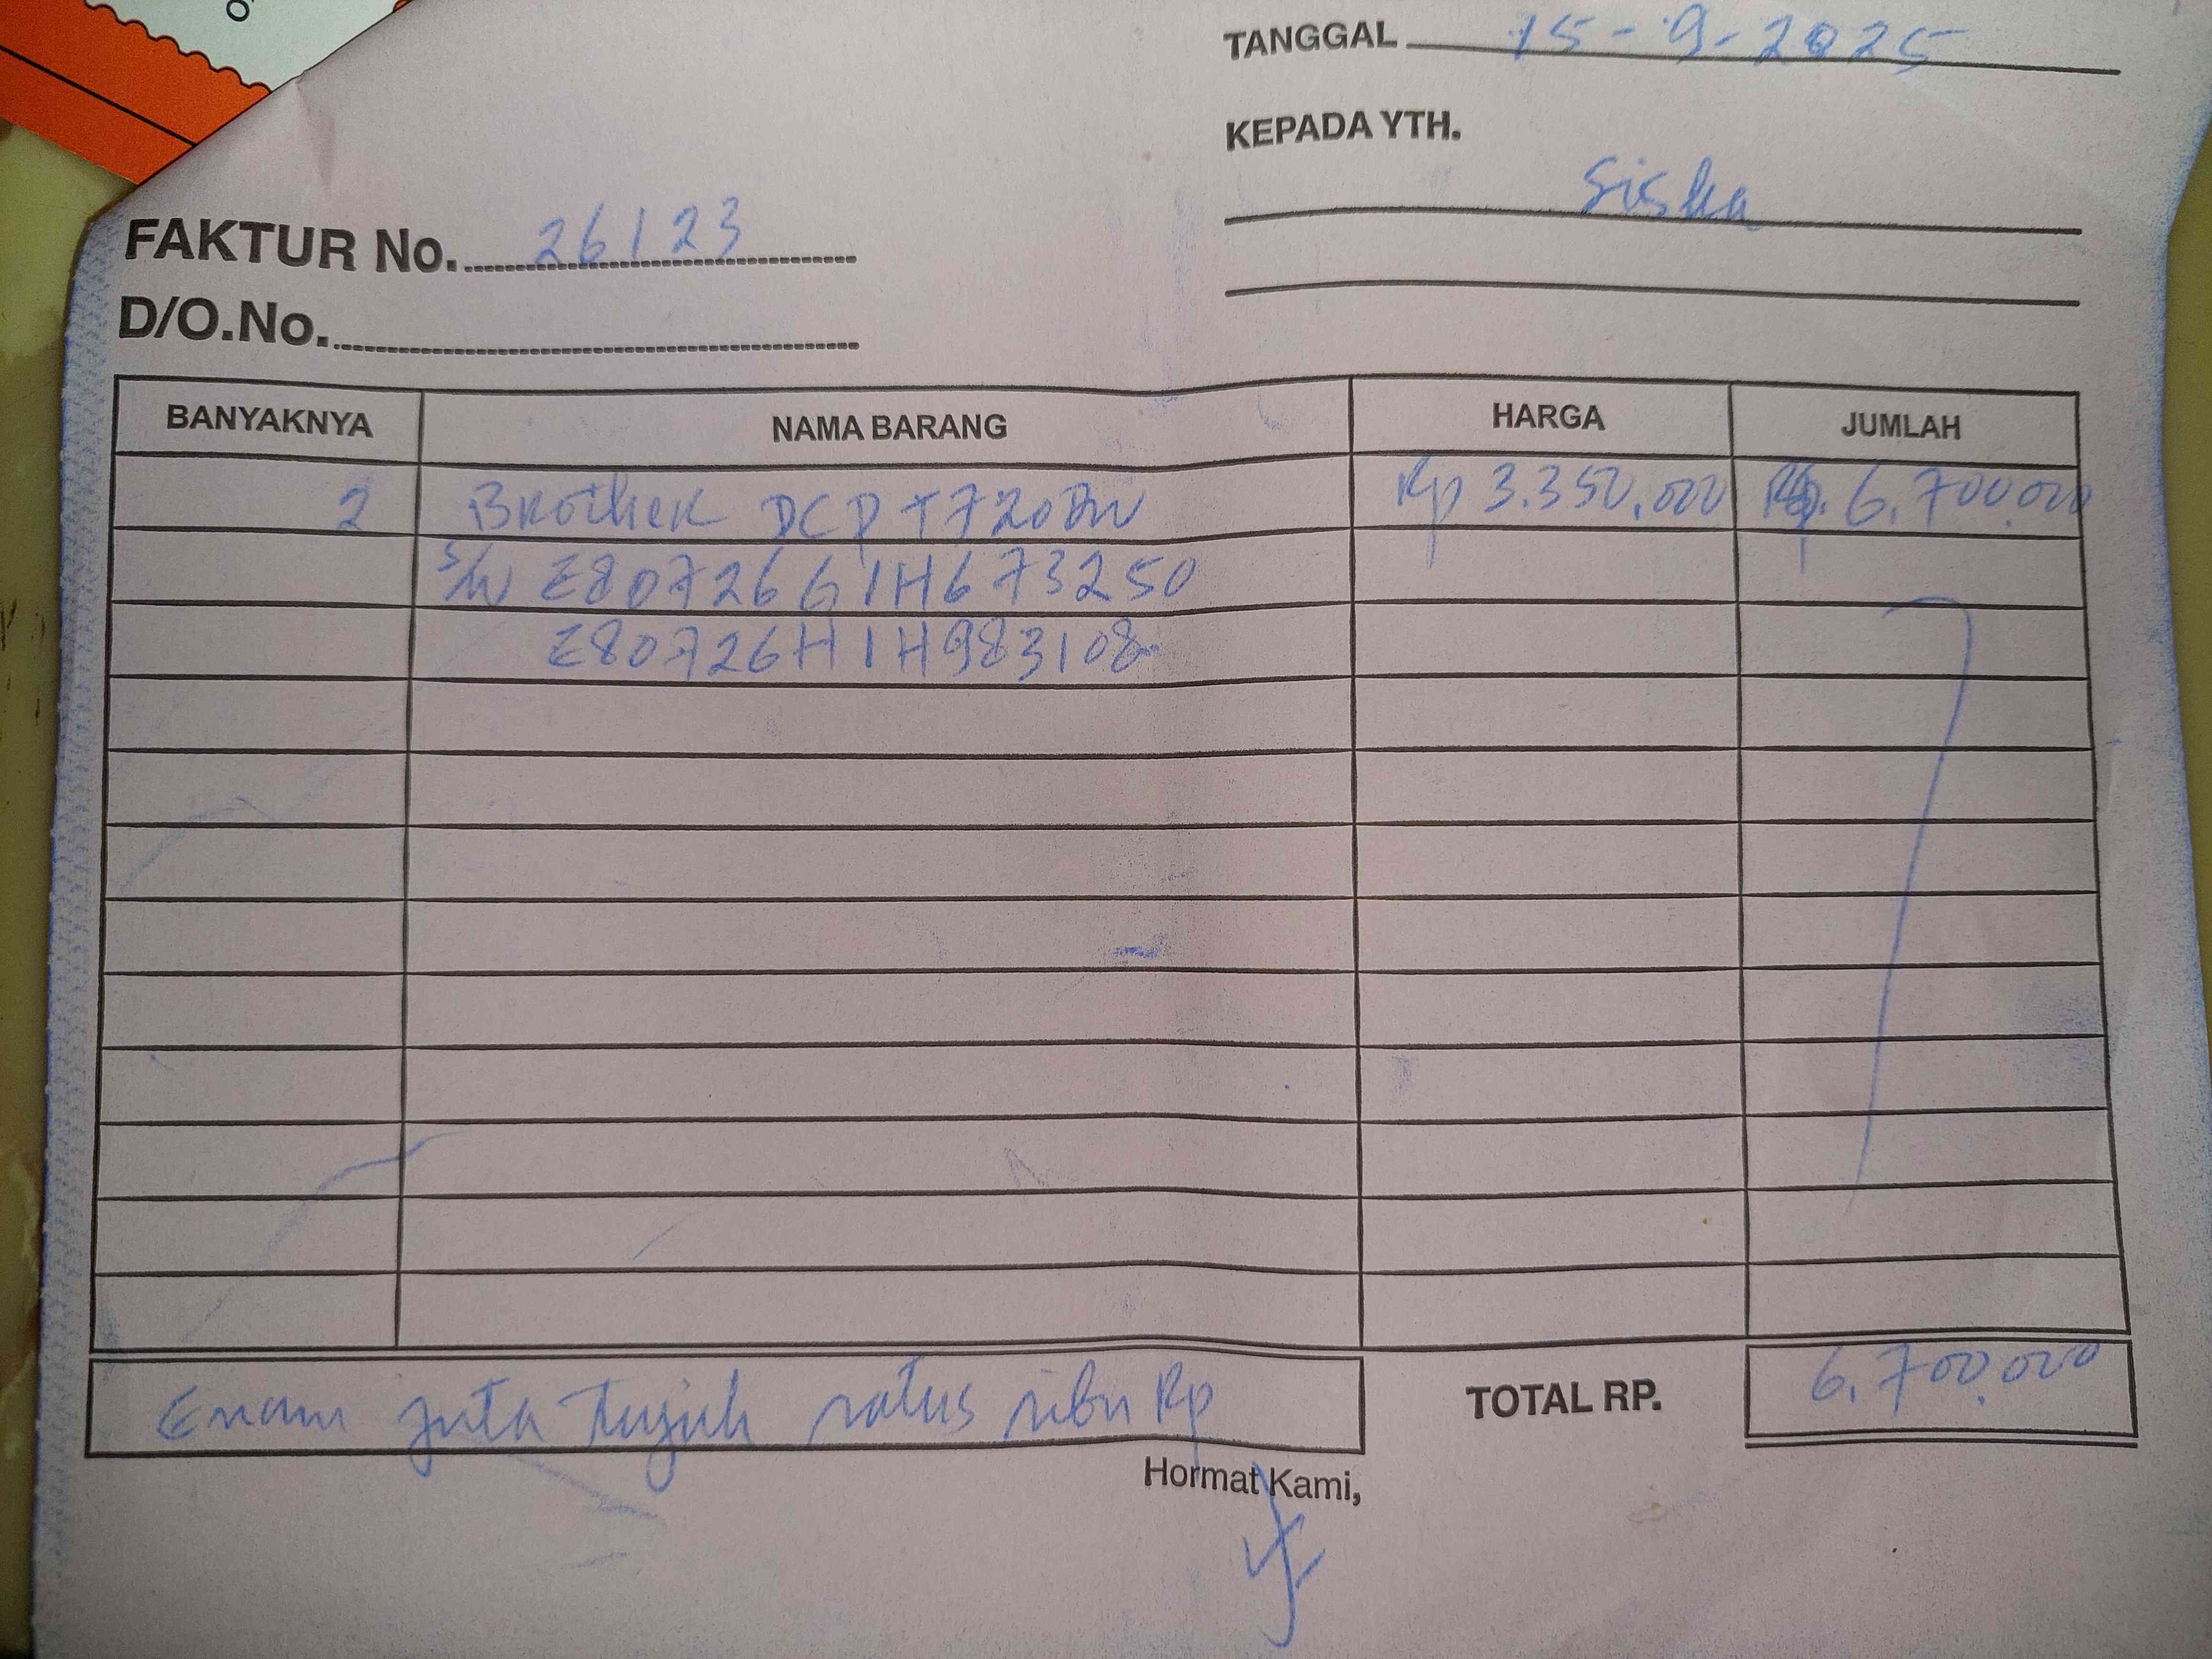 TANGGAL 15-9-2025
KEPADA YTH.
Siska
FAKTUR No. 26123
D/O.No.
BANYAKNYA NAMA BARANG HARGA JUMLAH
2 Brother DCP T720DW Rp 3.350.000 Rp. 6.700.000
S/N E80726G1H673250
E80726H1H983108
Enam juta tujuh ratus ribu Rp TOTAL RP. 6.700.000
Hormat Kami,